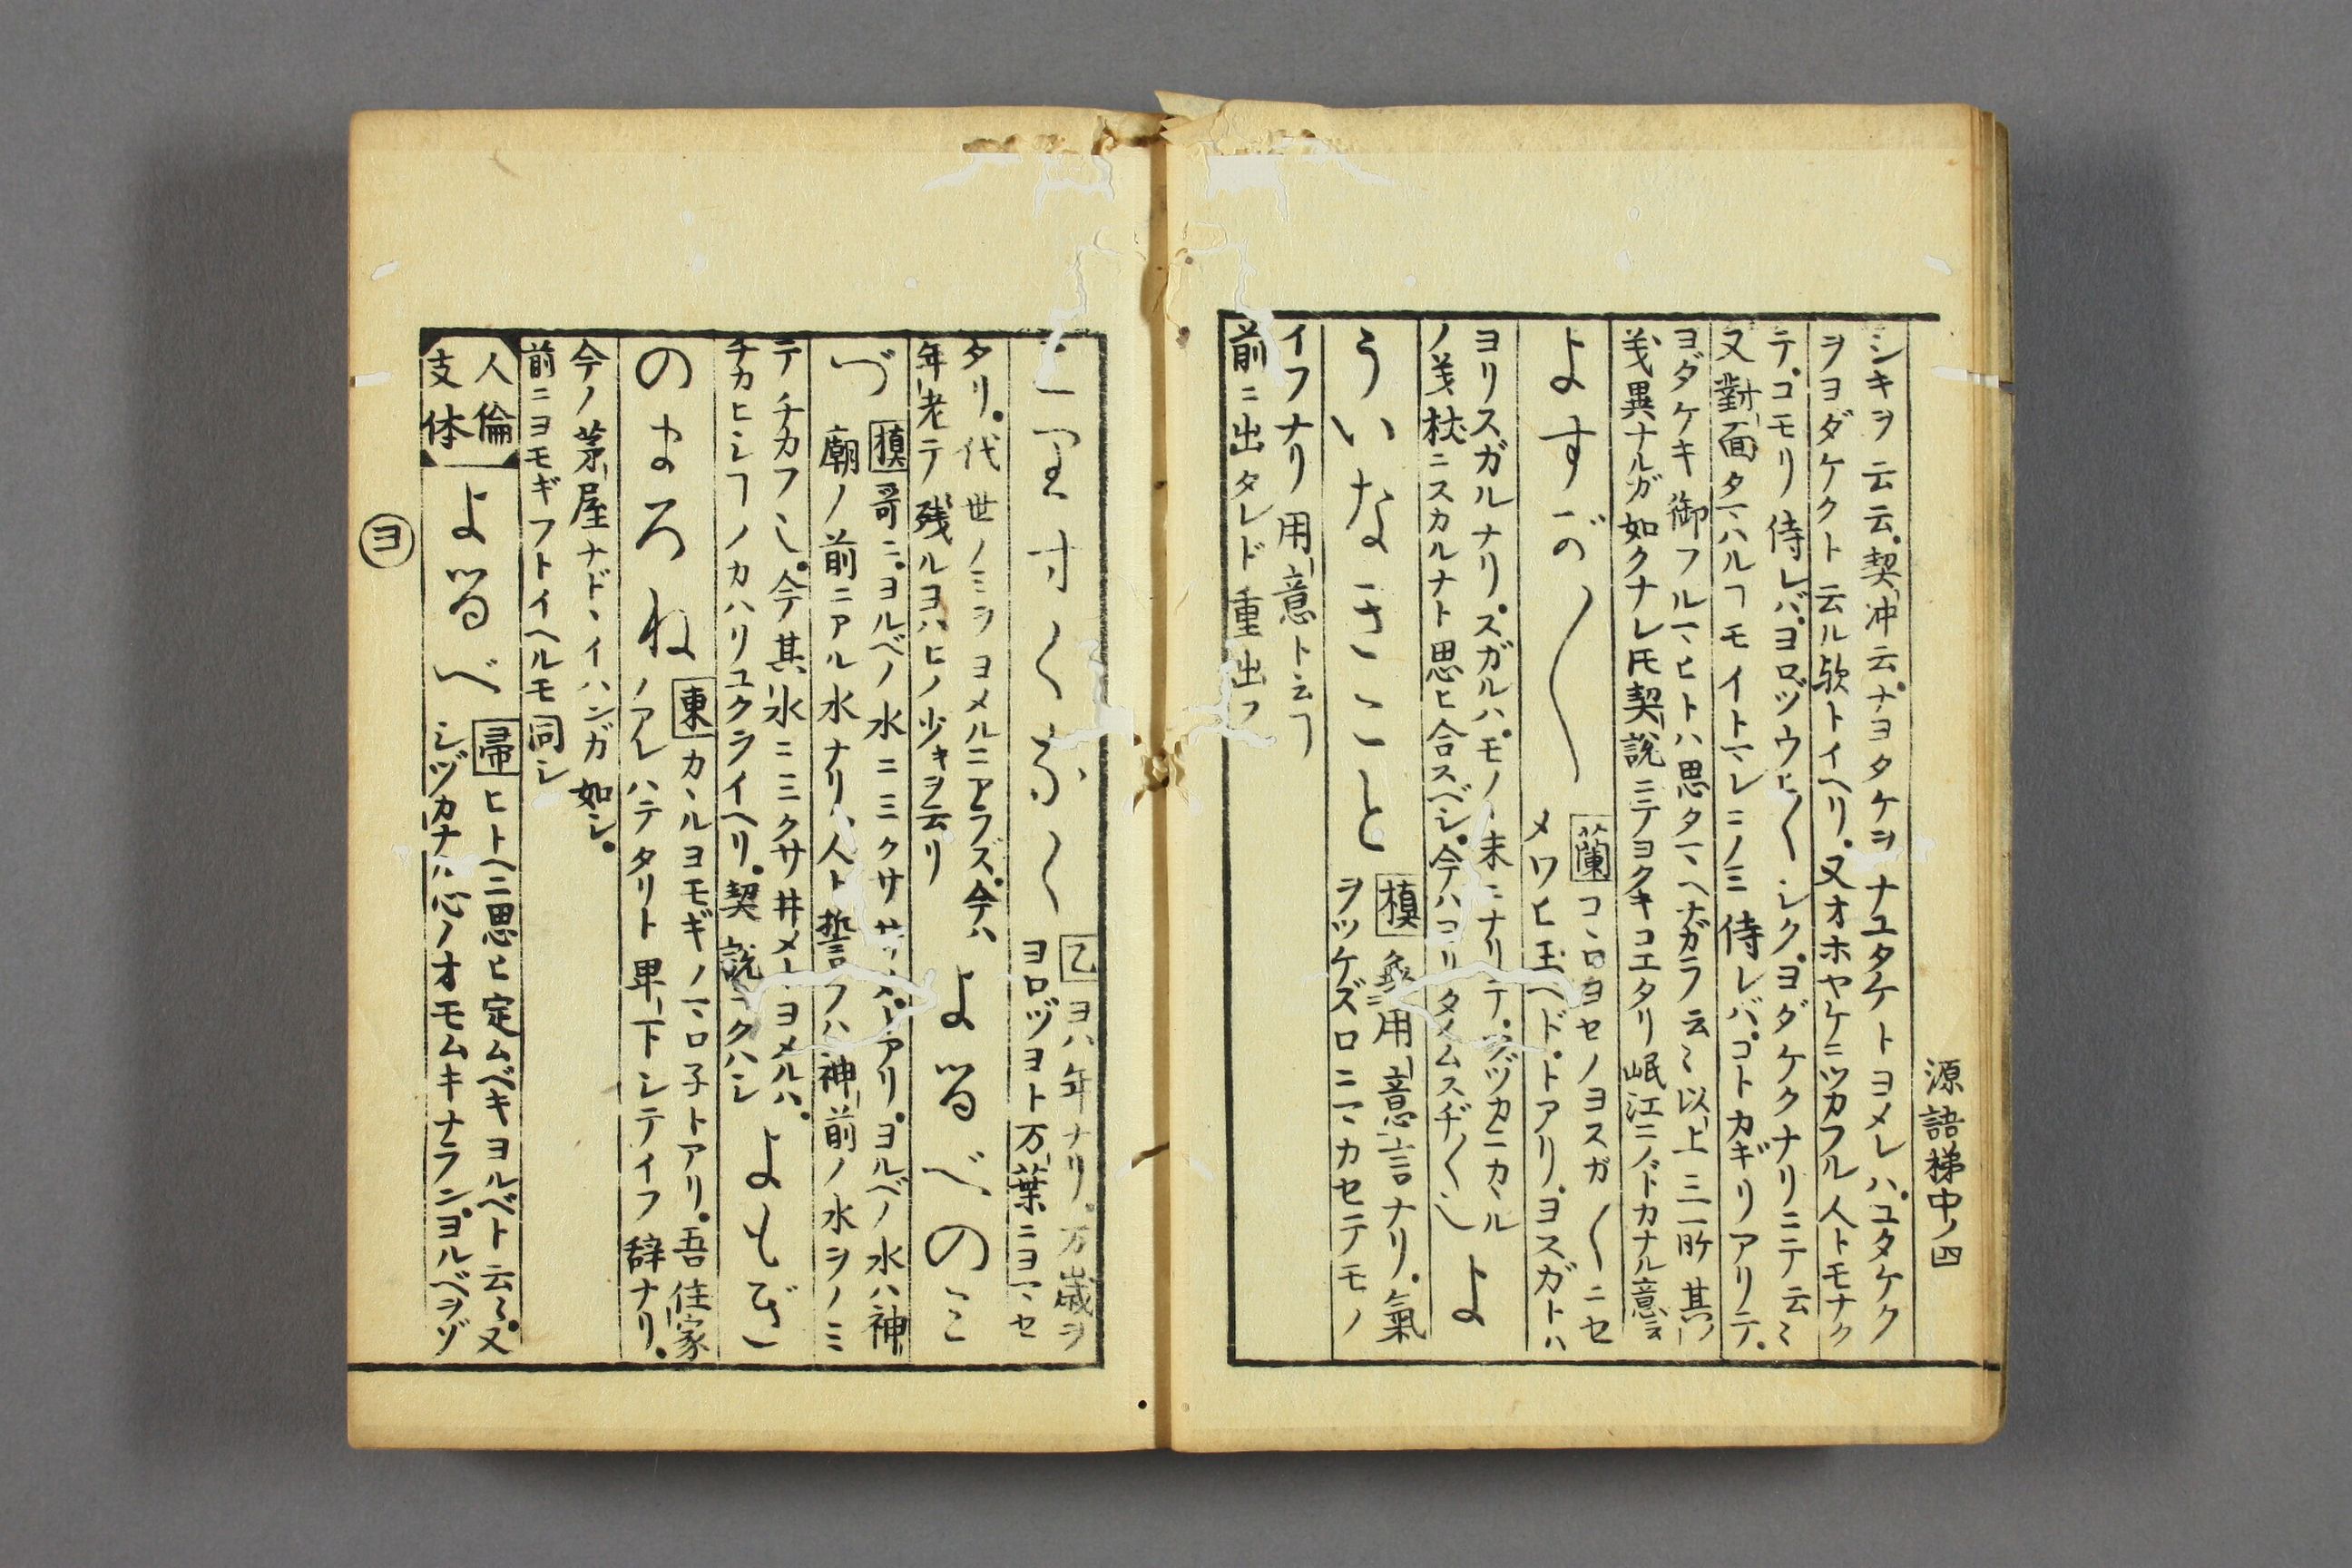 源語梯中ノ四
シキヲ云云。契冲云。ナヨタケヲナユタケトヨメレハ。ユタケク
ヲヨダケクト云ル歟トイヘリ。又オホヤケニツカフル人トモナク
テ。コモリ侍レバ。ヨロヅウヒ〳〵シク。ヨダケクナリニテ云〻
又對面タマハルヿモイトマレニノミ侍レバ。コトカギリアリテ。
ヨダケキ御フルマヒトハ思タマヘナガラ云〻以上三所其
義異ナルガ如クナレ𪜈契説ニテヨクキコエタリ岷江ニノドカナル意ヌ
よすが〳〵
蘭コヽロヨセノヨスガ〳〵ニセ
メワヒ玉ヘド。トアリ。ヨスガトハ
ヨリスガルナリ。スガルハ。モノノ末ニナリテ。ヅカニカヽル
ノ義杖ニスカルナト思ヒ合スベシ。今ハヨリタメムスヂ〳〵シ
よういなきこと
槙無用意言ナリ。氣
ヲツケズロニマカセテモノ
イフナリ用意ト云ヿ
前ニ出タレド重出ス
乙ヨハ年ナリ。万歳ヲ
ヨロヅヨト万葉ニヨマセ
タリ。代世ノミヲヨメルニアラズ。今ハ
年老テ残ルヨハヒノ少キヲ云リ
よるべのみづ
槙哥ニ。ヨルベノ水ニミクサ アリ。ヨルベノ水ハ神
廟ノ前ニアル水ナリ人ト誓フハ神前ノ水ヲノミ
テチカフ也。今其水ニミクサ井メトヨメルハ。
チカヒシヿノカハリユクライヘリ。契説コクハシ
よもぎのまろね
東カヽルヨモギノマロ子トアリ。吾住家
ノアレハテタリト卑下シテイフ辞ナリ。
今ノ茅屋ナドヽイハンガ如シ。
前ニヨモギフトイヘルモ同シ
人倫
支体
よるべ
帚ヒトヘニ思ヒ定ムベキヨルベト云〻。又
シヅカナル心ノオモムキナランヨルベヲゾ
ヨ